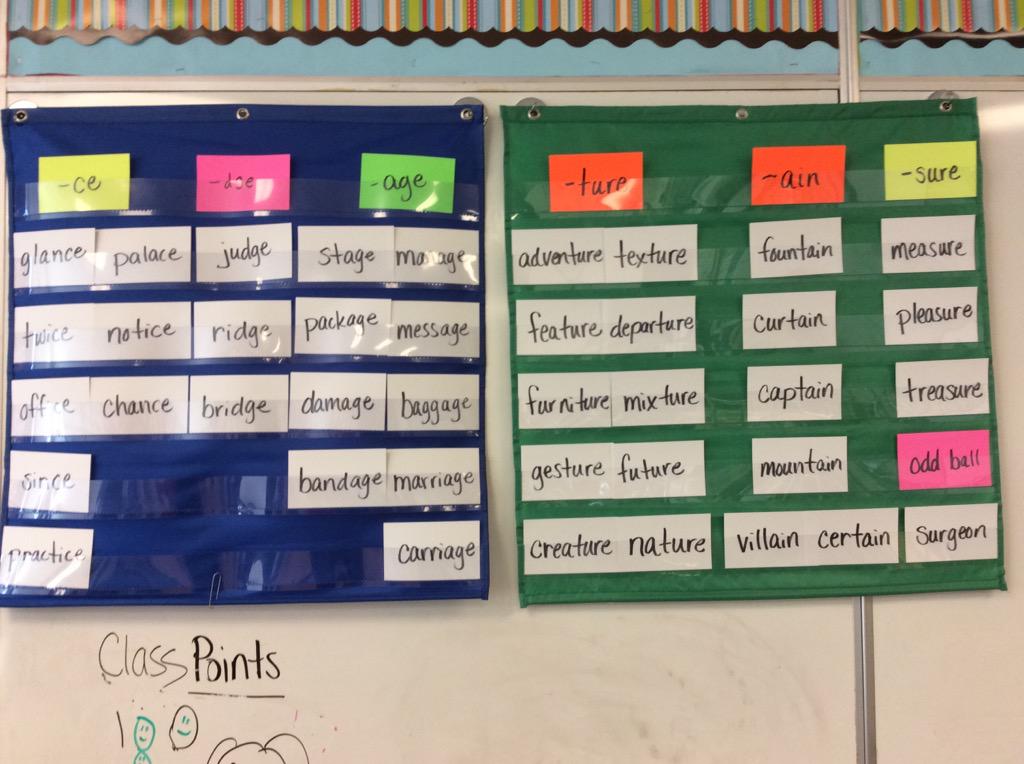 -ce -dge -age
glance palace judge stage
twice notice ridge package message
office chance bridge damage baggage
since bandage marriage
practice carriage
-ture -ain -sure
adventure texture fountain measure
feature departure curtain pleasure
furniture mixture captain treasure
gesture future mountain odd ball
creature nature villain certain surgeon
Class Points
1